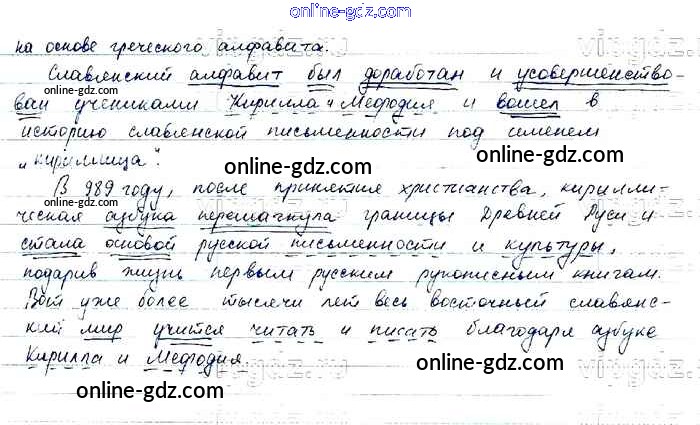 online-gdz.com
на основе греческого алфавита.
Славянский алфавит был доработан и усовершенство-
ван учениками Кирилла и Мефодия и вошел в
историю славянской письменности под именем
„кириллица".
online-gdz.com
online-gdz.com
В 989 году, после принятия христианства, кирилли-
ческая азбука перешагнула границы Древней Руси и
стала основой русской письменности и культуры,
подарив жизнь первым русским рукописным книгам.
Вот уже более тысячи лет весь восточный славянс-
кий мир учится читать и писать благодаря азбуке
Кирилла и Мефодия.
online-gdz.com
online-gdz.com